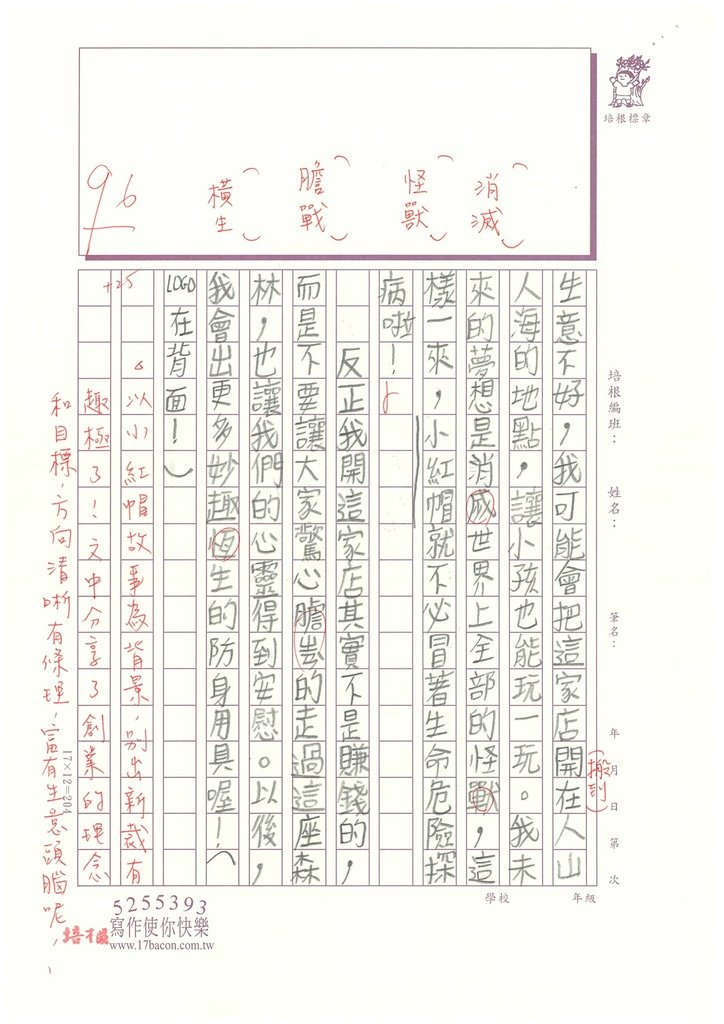 培根標章
96
消滅
怪獸
膽戰
橫生
培根編班：
姓名：
筆名：
年 月 日 第 次
學校 年級
生意不好，我可能會把這家店開在人山
(搬到)
人海的地點，讓小孩也能玩一玩。我未
來的夢想是消威世界上全部的怪戰，這
樣一來，小紅帽就不必冒著生命危險探
病啦！
反正我開這家店其實不是賺錢的，
而是不要讓大家驚心膽的走過這座森
林，也讓我們的心靈得到安慰。以後，
我會出更多妙趣恆生的防身用具喔！(
LOGO在背面！)
+25
。以小紅帽故事為背景，別出新裁有
趣極了！文中分享了創業的理念
和目標，方向清晰有條理，富有生意頭腦呢，
17×12=204
5255393
培根 寫作使你快樂
www.17bacon.com.tw